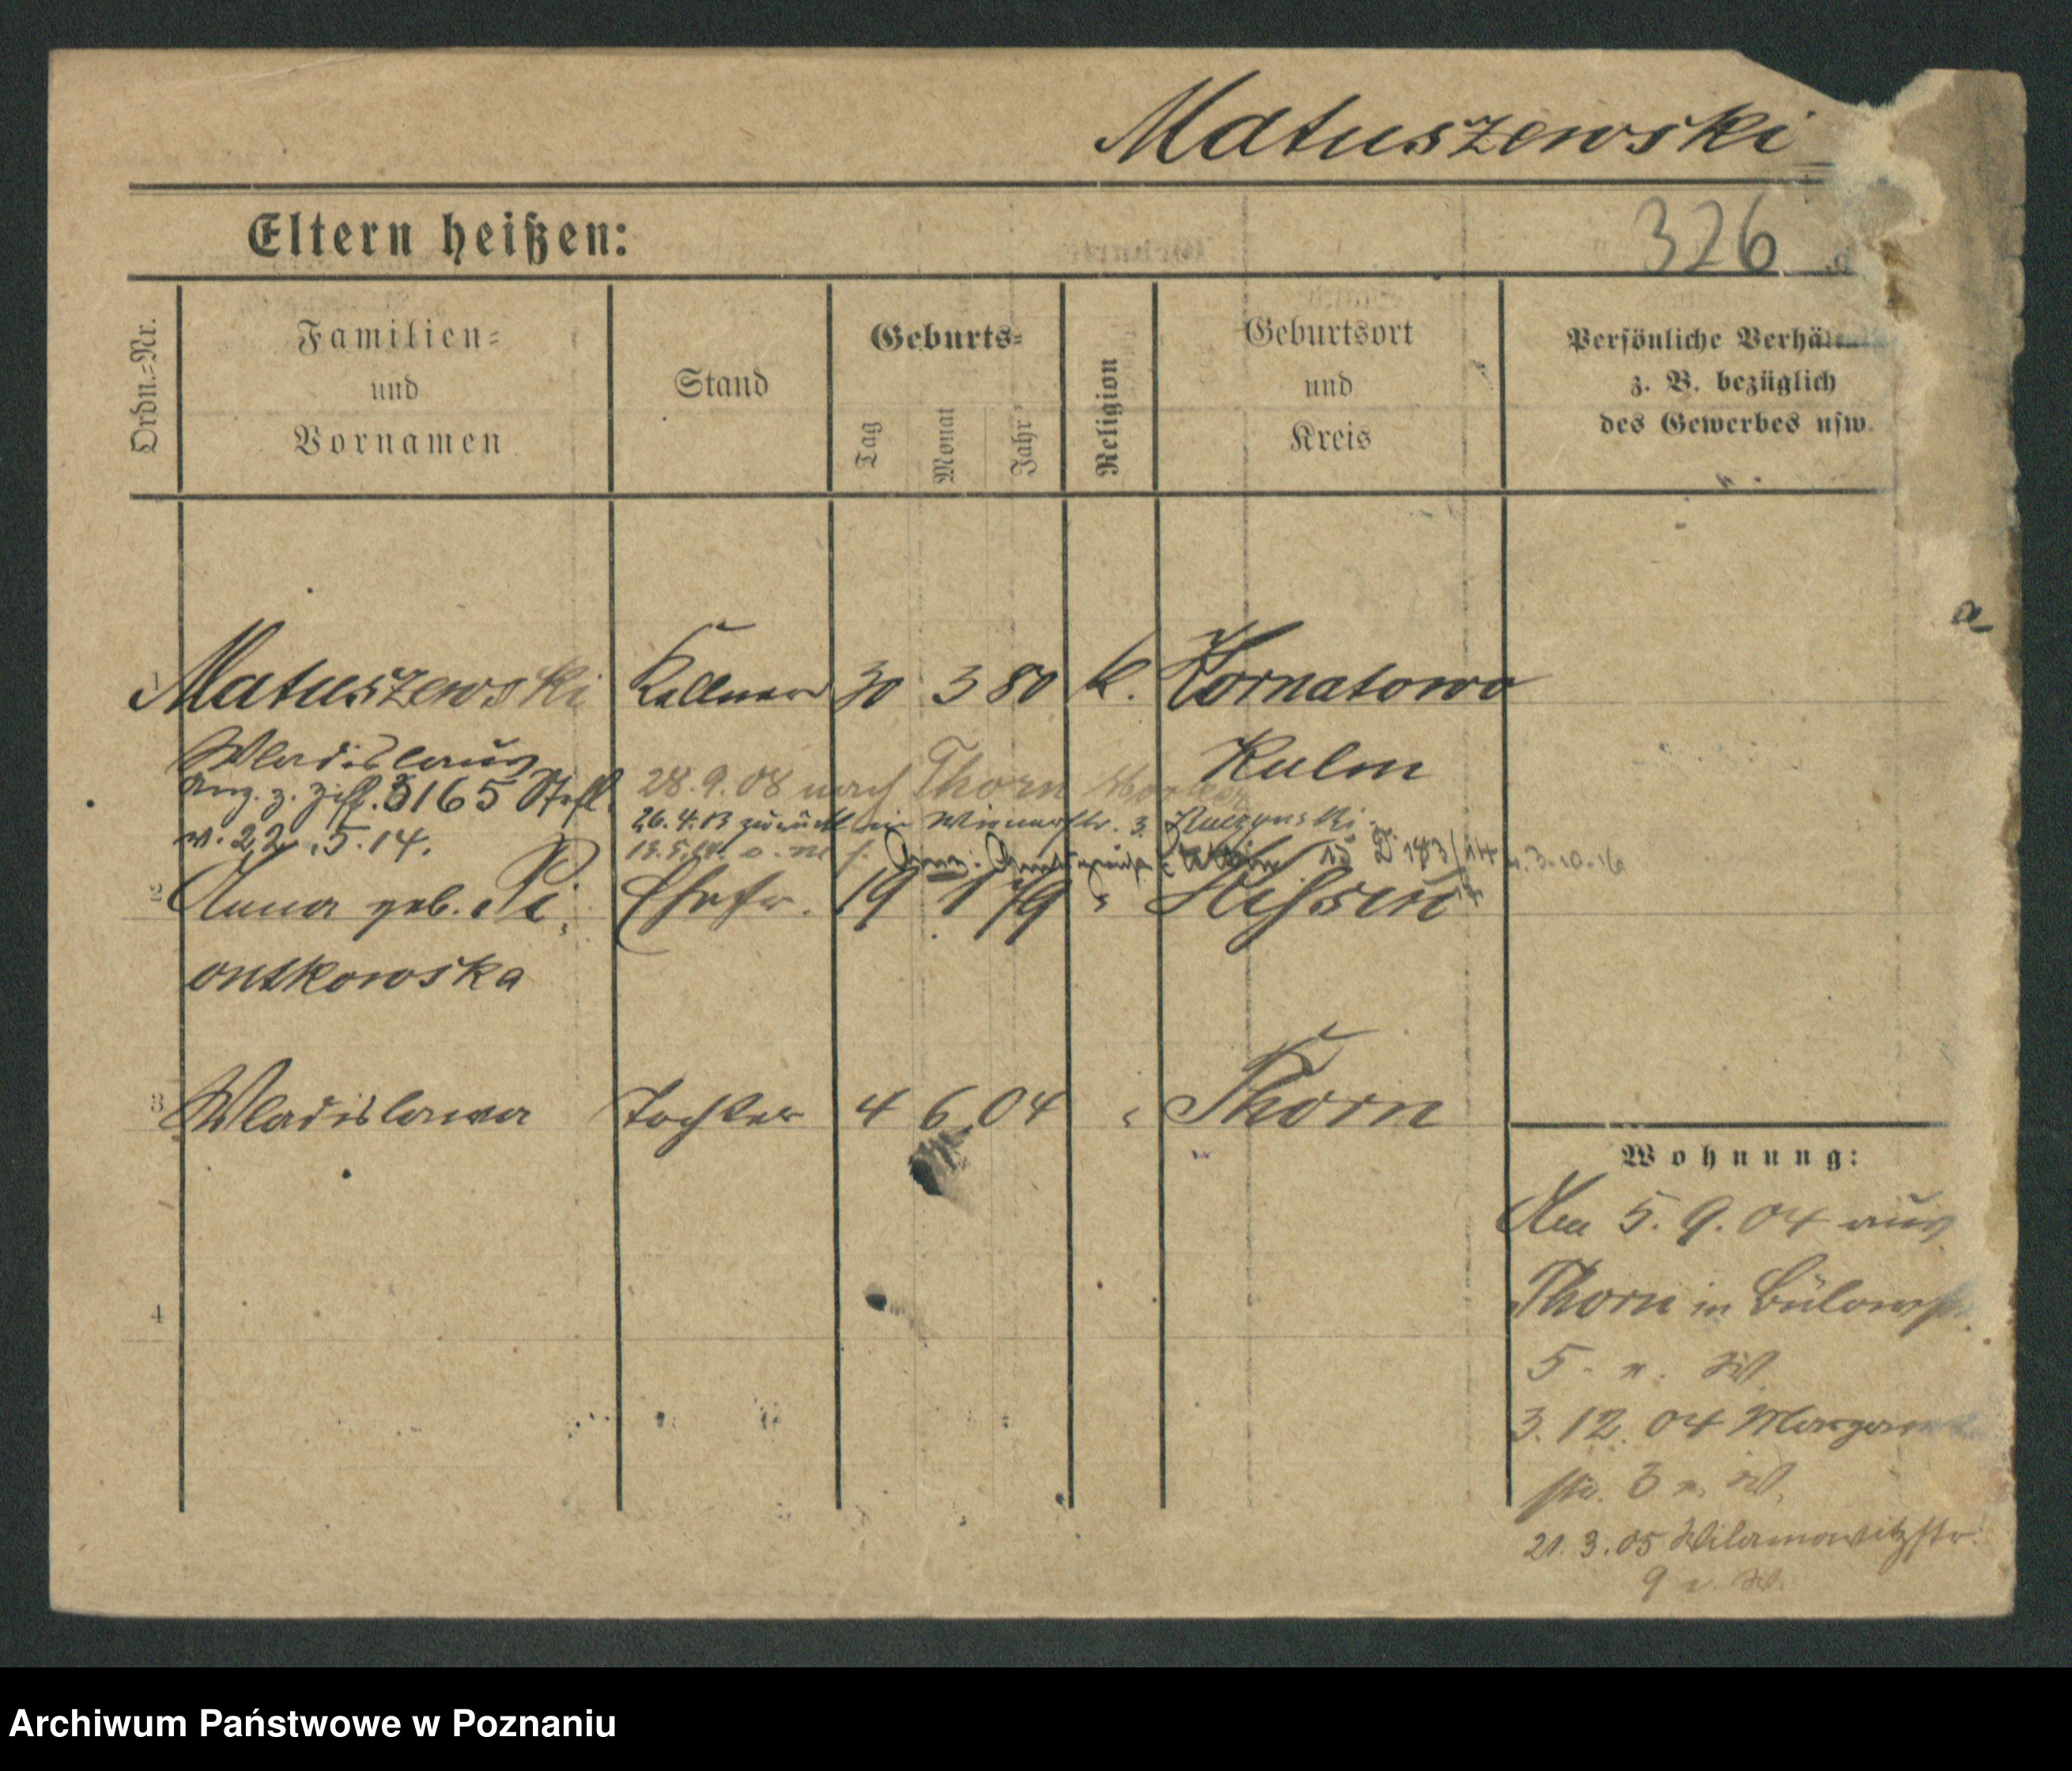 Matuszewski
Eltern heißen:
326
Ordn.-Nr.
Familien-
und
Vornamen
Stand
Geburts-
Tag
Monat
Jahr
Religion
Geburtsort
und
Kreis
Persönliche Verhä
z. B. bezüglich
des Gewerbes usw.
1 Matuszewski Kellner 30 3 80 K. Kornatowo
Wladislaus Kulm
28.9.08 nach Thorn
5165
v. 22.5.14.
26.4.13 zurück Wienerstr. 3. Kuczynski
15 D 183/14 v. 3-10-16
2 Anna geb. Pi Ehefr. 19 1 79 "
ontkowska
3 Wladislawa Tochter 4 6.04 " Thorn
4
Wohnung:
Am 5.9.04 aus
Thorn in Bülowstr.
5. n. W.
3.12.04 Margare
str. 3 n. W.
21.3.05 Wilamowitzstr.
9 n. W.
Archiwum Państwowe w Poznaniu